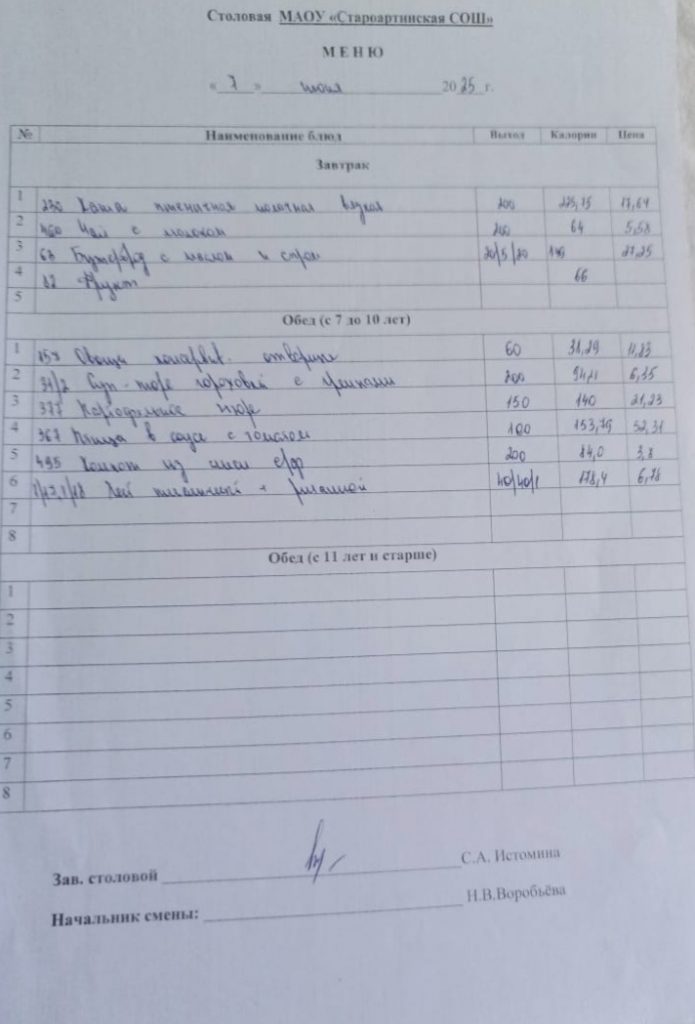 Столовая МАОУ «Староартинская СОШ»
МЕНЮ
« 7 » июля 2025 г.
№ Наименование блюд Выход Калории Цена
Завтрак
1 230 Каша пшеничная молочная вязкая 200 225,75 17,64
2 460 Чай с молоком 200 64 5,58
3 63 Бутерброд с маслом и сыром 20/5/20 27,25
4 82 Фрукт 66
5
Обед (с 7 до 10 лет)
1 157 Овощи консервир. отварные 60 38,29 11,83
2 34/2 Суп-пюре гороховый с гренками 200 94,11 6,35
3 377 Картофельное пюре 150 140 21,23
4 367 Птица в соусе с томатом 100 153,79 52,31
5 495 Компот из смеси с/ф 200 84,0 3,8
6 Хлеб пшеничный + ржаной 40/40/1 178,4 6,78
7
8
Обед (с 11 лет и старше)
1
2
3
4
5
6
7
8
Зав. столовой С.А. Истомина
Начальник смены: Н.В.Воробьёва